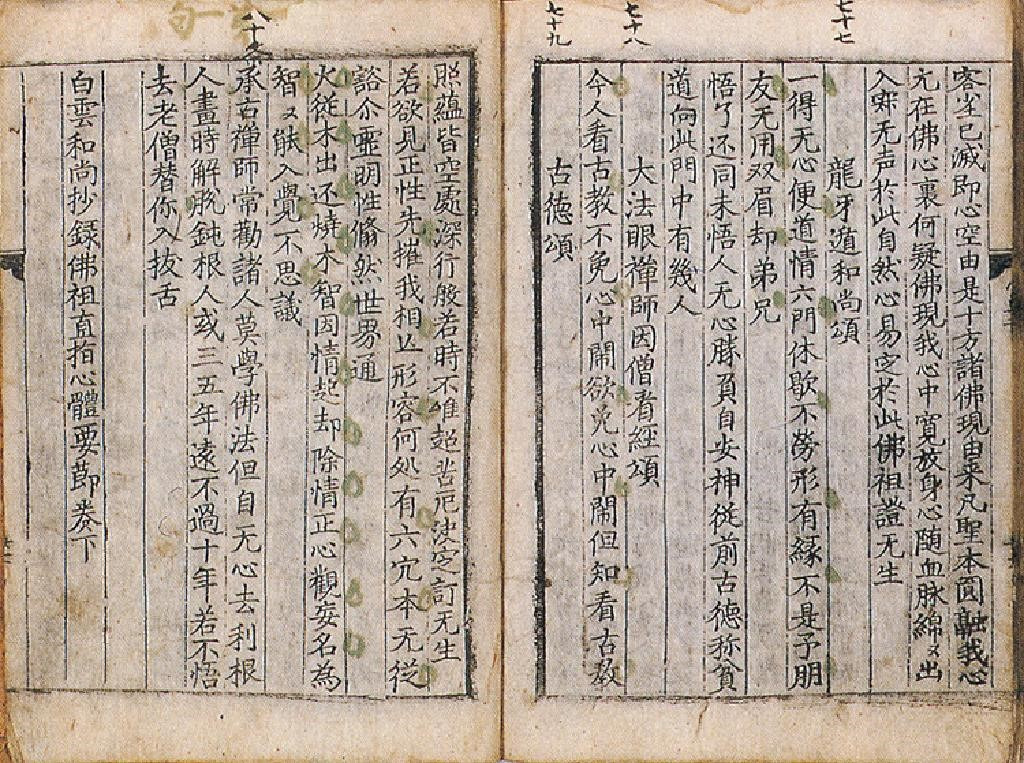 七十七
七十八
七十九
客尘已滅即心空由是十方諸佛現由来凡聖本圓融我心
元在佛心裏何疑佛現我心中寛放身心随血脉綿〻出
入寂无声於此自然心易定於此佛祖證无生
龍牙遁和尚頌
一得无心便道情六門休歇不勞形有縁不是予朋
友无用双眉却弟兄
悟了还同未悟人无心勝負自安神從前古德称貧
道向此門中有幾人
大法眼禪師因僧看經頌
今人看古教不免心中閙欲免心中閙但知看古教
古德頌
八十
照蘊皆空處深行般若時不唯超苦厄决定訂无生
若欲見正性先摧我相丘形容何処有六宂本无従
谿尒靈明性翛然世界通
火從木出还燒木智因情起却除情正心觀妄名為
智〻能入覺不思議
承古禪師常勸諸人莫學佛法但自无心去利根
人畫時解脫鈍根人或三五年遠不過十年若不悟
去老僧替你入拔舌
白雲和尚抄録佛祖直指心體要節卷下